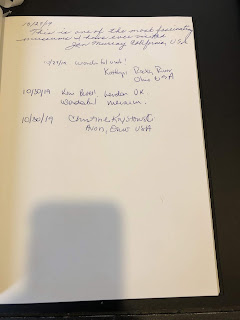 10/27/19
This is one of the most fascinating
museums I have ever visited
Murray California, USA
10/27/19 Wonderful visit!
Kathryn Rocky River
Ohio USA
10/30/19 London UK.
Wonderful museum.
10/30/19 Christine
Avon, Ohio USA